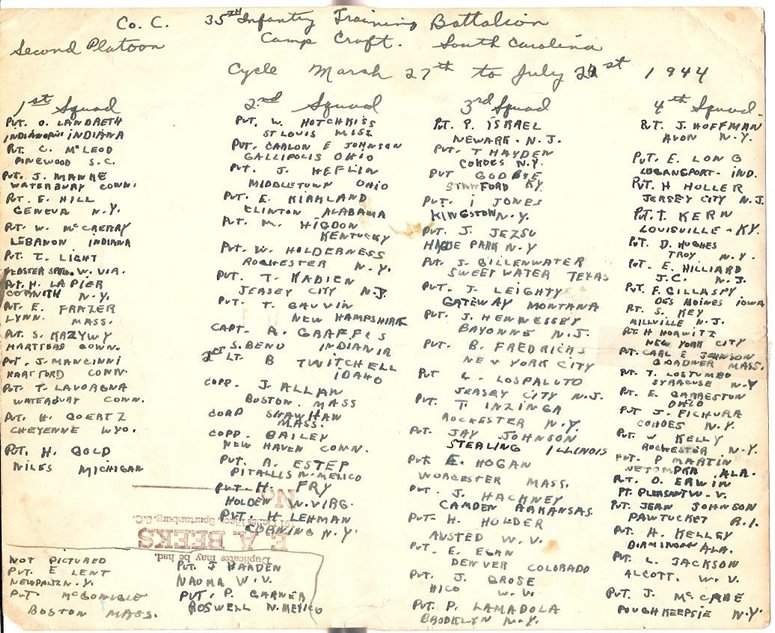 Co. C. 35TH Infantry Training Battalion
Second Platoon Camp Croft. South Carolina
Cycle March 27th to July 21st 1944
1st Squad
PVT. O. LANDRETH
INDIANAPOLIS INDIANA
PVT. C. McLEOD
PINEWOOD S.C.
PVT. J. MANKE
WATERBURY CONN.
PVT. E. HILL
GENEVA N.Y.
PVT. W. McCRERRY
LEBANON INDIANA
PVT. T. LIGHT
W. VIR.
PVT. H. LAPIER
CORNITH N.Y.
PVT. E. FRAZER
LYNN. MASS.
PVT. S. KAZYWY
HARTFORD CONN.
PVT. J. MANCINNI
HARTFORD CONN.
PVT. T. LAVORGNA
WATERBURY CONN.
PVT. H. GOERTZ
CHEYENNE WYO.
PVT. H. GOLD
NILES MICHIGAN
NOT PICTURED
PVT E LENT
NEWPALTZ N.Y.
PVT McGONIGLE
BOSTON MASS.
2nd Squad
PVT. W. HOTCHKISS
ST LOUIS MISS.
PVT. CARLON E JOHNSON
GALLIPOLIS OHIO
PVT. J. HEFLIN
MIDDLETOWN OHIO
PVT. E. KIRKLAND
CLINTON ALABAMA
PVT. M. HIGDON
KENTUCKY
PVT. W. HOLDERNESS
ROCHESTER N.Y.
PVT. T. KADIEN
JERSEY CITY N.J.
PVT. T. GAUVIN
NEW HAMPSHIRE
CAPT. R. GRAFFIS
S. BEND INDIANIA
1st LT. B TWITCHELL
IDAHO
CORP. J. ALLAN
BOSTON. MASS
CORP SHAWHAN
MASS.
CORP. BAILEY
NEW HAVEN CONN.
PVT. R. ESTEP
PITALLS N. MEXICO
PVT. H. FRY
HOLDEN W. VIRG.
PVT. H. LEHMAN
CORNING N.Y.
E. A. BEEKS
Spartanburg, S.C.
Duplicates may be had.
No
PVT. J HARDEN
NAOMA W.V.
PVT. P. GARNER
ROSWELL N. MEXICO
3rd Squad
PVT. P. ISRAEL
NEWARK. N.J.
PVT. T HAYDEN
COHOES N.Y.
PVT GODBYE
STANFORD KY.
PVT. I JONES
KINGSTON N.Y.
PVT. J. JEZSU
HYDE PARK N.Y
PVT. J. GILLENWATER
SWEET WATER TEXAS
PVT. J. LEIGHTY
GATEWAY MONTANA
PVT. J. HENNESSEY
BAYONNE N.J.
PVT. B. FREDRICKS
NEW YORK CITY
PVT L. LOSPALUTO
JERSEY CITY N.J.
PVT. T. INZINGA
ROCHESTER N.Y.
PVT. JAY JOHNSON
STERLING ILLINOIS
PVT. E. HOGAN
WORCESTER MASS.
PVT. J. HACKNEY
CAMDEN ARKANSAS
PVT. H. HOLDER
AUSTED W.V.
PVT. E. EGAN
DENVER COLORADO
PVT. J. GROSE
HICO W.V.
PVT. P. LAMADOLA
BROOKLYN N.Y.
4th Squad
PVT. J. HOFFMAN
AVON N.Y.
PVT. E. LONG
LOGANSPORT - IND.
PVT. H HOLLER
JERSEY CITY N.J.
PVT. T. KERN
LOUISVILLE - KY.
PVT. D. HUGHES
TROY N.Y.
PVT. E. HILLIARD
J.C. N.J.
PVT. F. GILLASPY
DES MOINES IOWA
PVT. S. KEY
MILLVILLE N.J.
PVT H HORWITZ
NEW YORK CITY
PVT. CARL E JOHNSON
GARDNER MASS.
PVT. T. LOSTUMBO
SYRACUSE N.Y
PVT. E GARRESTON
OHIO
PVT J. FICHURA
COHOES N.Y.
PVT. W KELLY
ROCHESTER N.Y.
PVT. P MARTIN
WETOMPKA ALA.
PVT. O. ERWIN
PT. PLEASANT W.V.
PVT. JEAN JOHNSON
PAWTUCKET R.I.
PVT. A. KELLEY
BIRMINGHAM ALA.
PVT. L. JACKSON
ALCOTT. W.V.
PVT. J. McCABE
POUGHKEEPSIE N.Y.